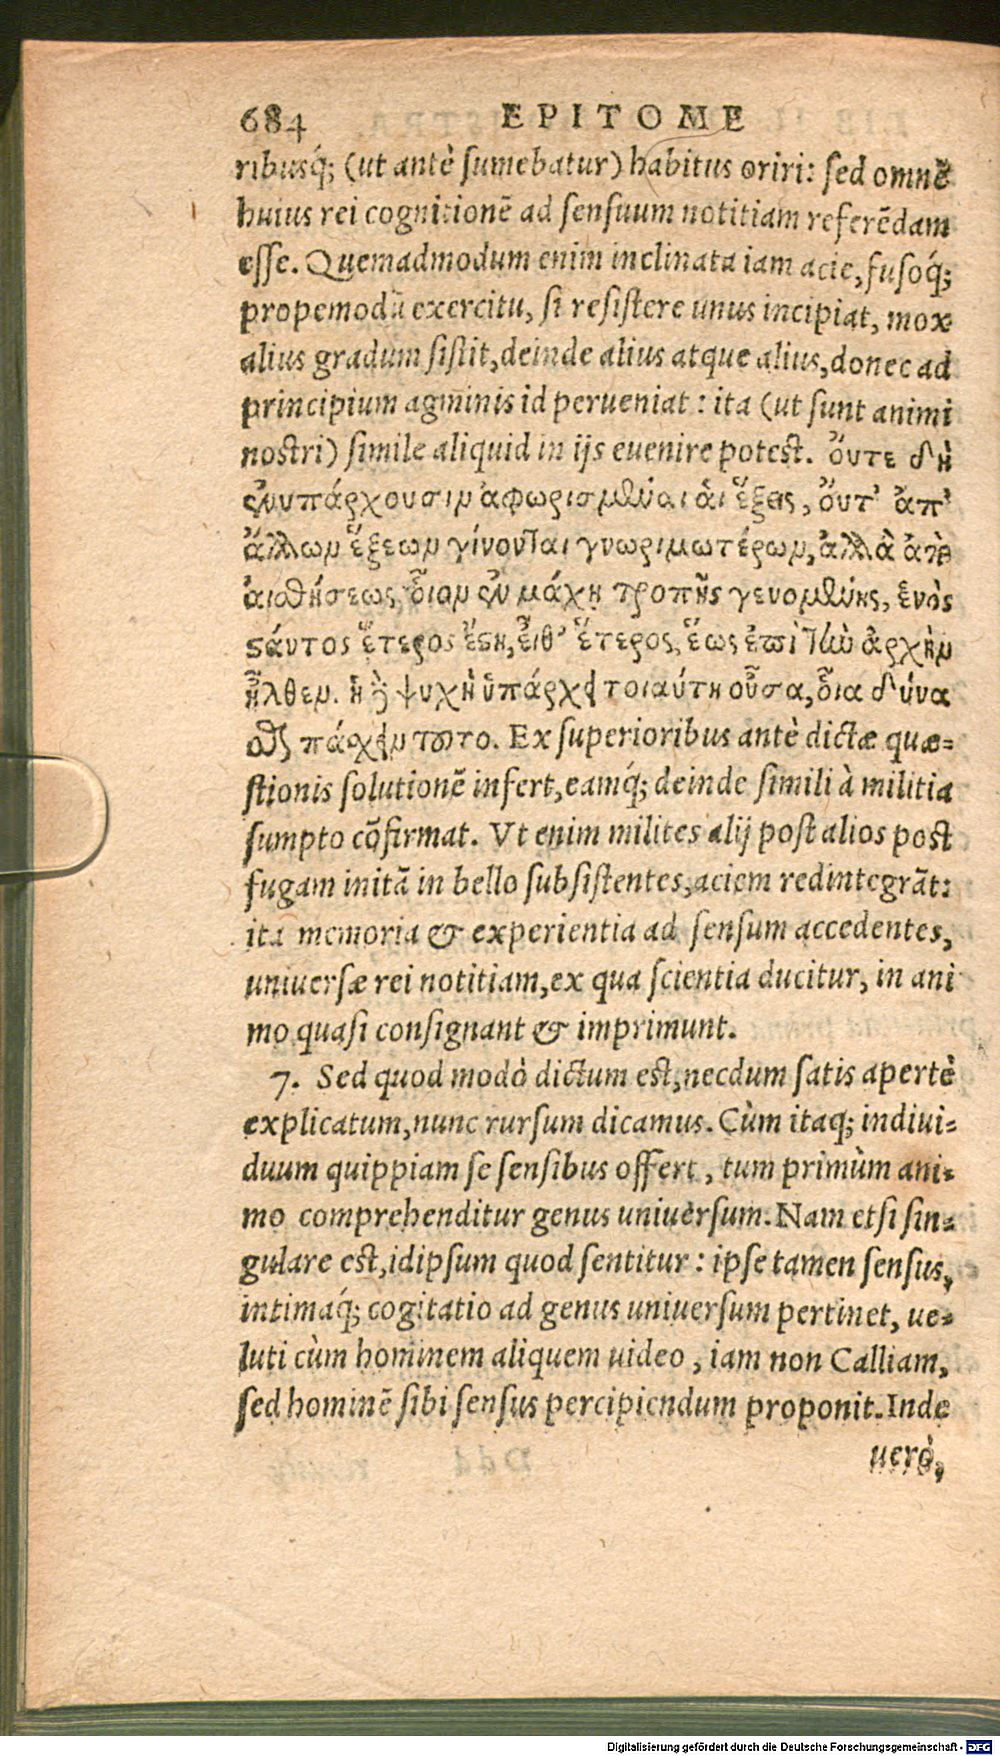 684 EPITOME
ribusq́; (ut antè sumebatur) habitus oriri: sed omnẽ
huius rei cognitionẽ ad sensuum notitiam referẽdam
esse. Quemadmodum enim inclinata iam acie, fusoq́;
propemodũ exercitu, si resistere unus incipiat, mox
alius gradum sistit, deinde alius atque alius, donec ad
principium agminis id perueniat: ita (ut sunt animi
nostri) simile aliquid in ijs euenire potest. ὄυτε δὴ
ἐνυπάρχουσιν ἀφωρισμέναι ἁι ἕξεις, ὄυτ' ἀπ'
ἄλλων ἕξεων γίνονται γνωριμωτέρων, ἀλλὰ ἀπὸ
ἀισθήσεως, ὅιον ἐν μάχῃ τροπῆς γενομένης, ἑνὸς
ϛάντος ἕτερος ἔϛη, ἔιθ' ἕτερος, ἕως ἐπὶ τὴν ἀρχὴν
ἦλθεν. ἡ δὲ ψυχὴ ὑπάρχει τοιαύτη οὖσα, ὅια δύνα
σθαι πάσχειν τοῦτο. Ex superioribus antè dictæ quæ-
stionis solutionẽ infert, eamq́; deinde simili à militia
sumpto cõfirmat. Vt enim milites alij post alios post
fugam initã in bello subsistentes, aciem redintegrãt:
ita memoria & experientia ad sensum accedentes,
uniuersæ rei notitiam, ex qua scientia ducitur, in ani
mo quasi consignant & imprimunt.
7. Sed quod modò dictum est, necdum satis apertè
explicatum, nunc rursum dicamus. Cùm itaq; indiui-
duum quippiam se sensibus offert, tum primùm ani-
mo comprehenditur genus uniuersum. Nam etsi sin-
gulare est, idipsum quod sentitur: ipse tamen sensus,
intimaq́; cogitatio ad genus uniuersum pertinet, ue-
luti cùm hominem aliquem uideo, iam non Calliam,
sed hominẽ sibi sensus percipiendum proponit. Inde
uerò,
Digitalisierung gefördert durch die Deutsche Forschungsgemeinschaft - DFG